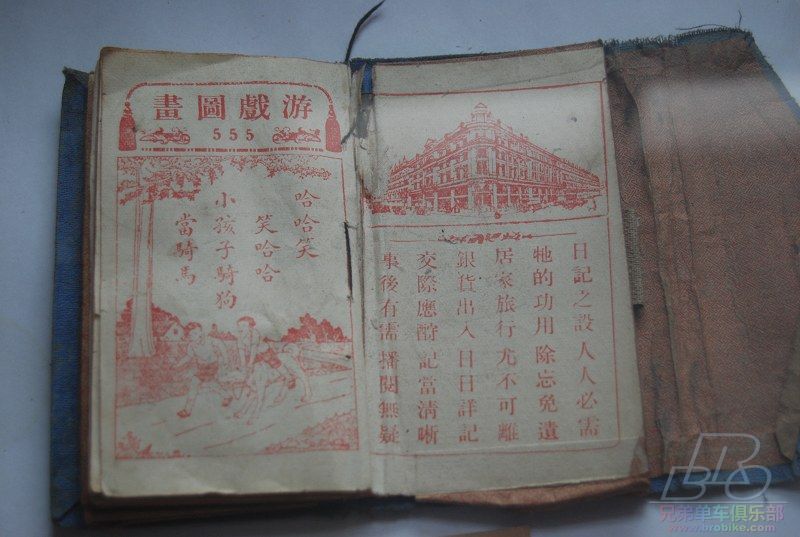 游戲圖畫
555
哈哈笑
笑哈哈
小孩子騎狗
當騎馬
日記之設 人人必需
牠的功用 除忘免遺
居家旅行 尤不可離
銀貨出入 日日詳記
交際應酧 記當清晰
事後有需 播閱無疑
BRO
兄弟单车俱乐部
www.brobike.com